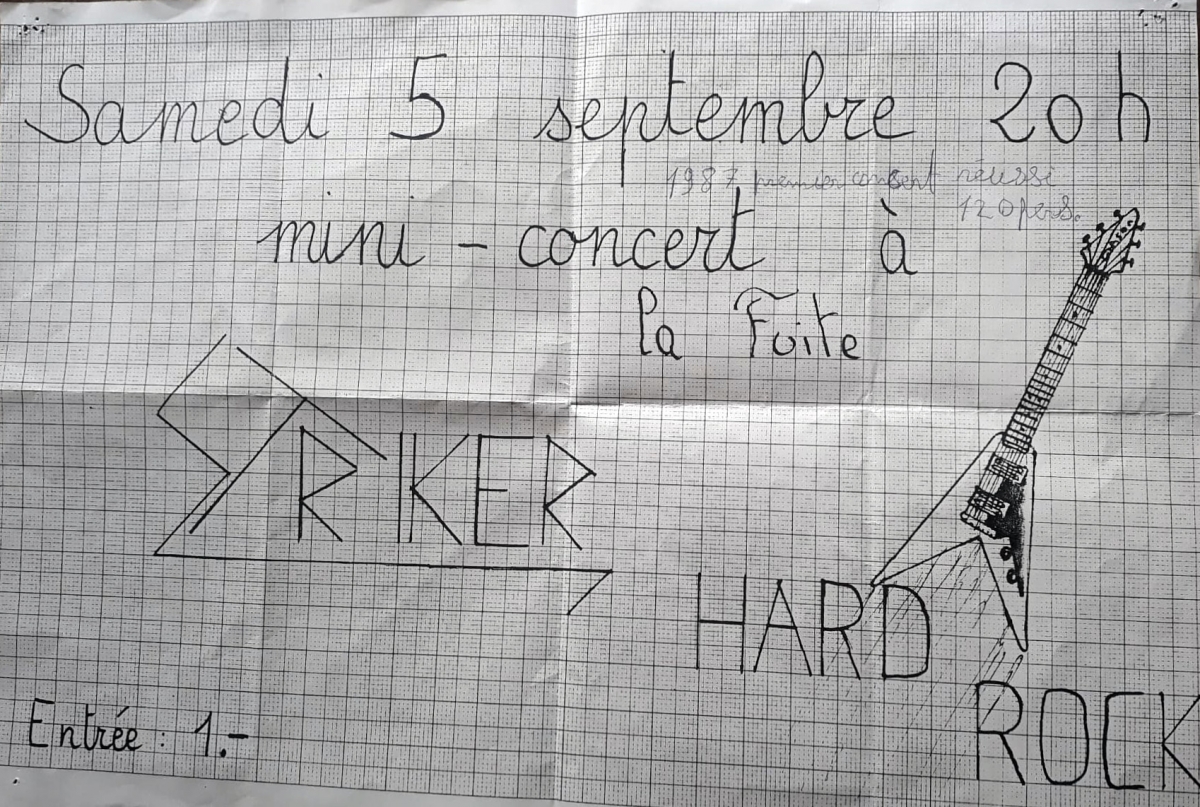 Samedi 5 septembre 20h
1987 premier concert réussi
120 pers.
mini - concert à
la Fuite
STRIKER
HARD
ROCK
Entrée : 1.-